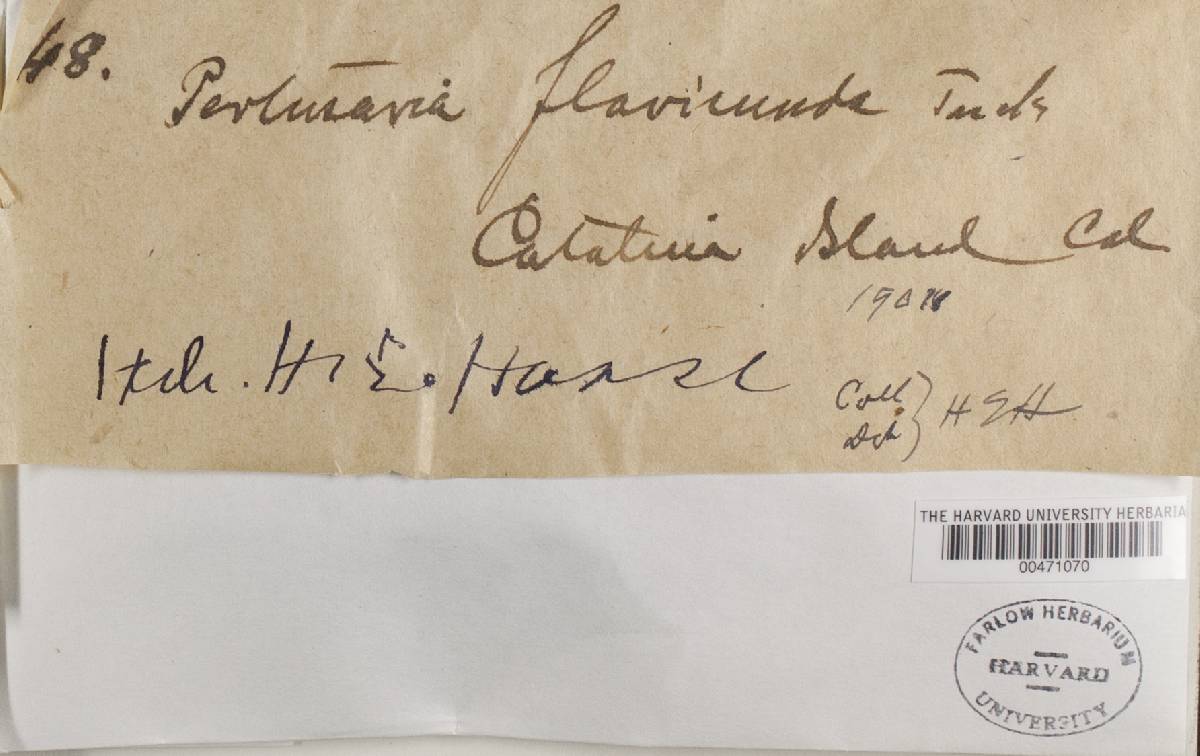 48.
Pertusaria flavicunda Tuck
Catalina Island Cal
Herb. H. E. Hasse
Coll
Det } HEH
THE HARVARD UNIVERSITY HERBARIA
00471070
FARLOW HERBARIUM
HARVARD
UNIVERSITY